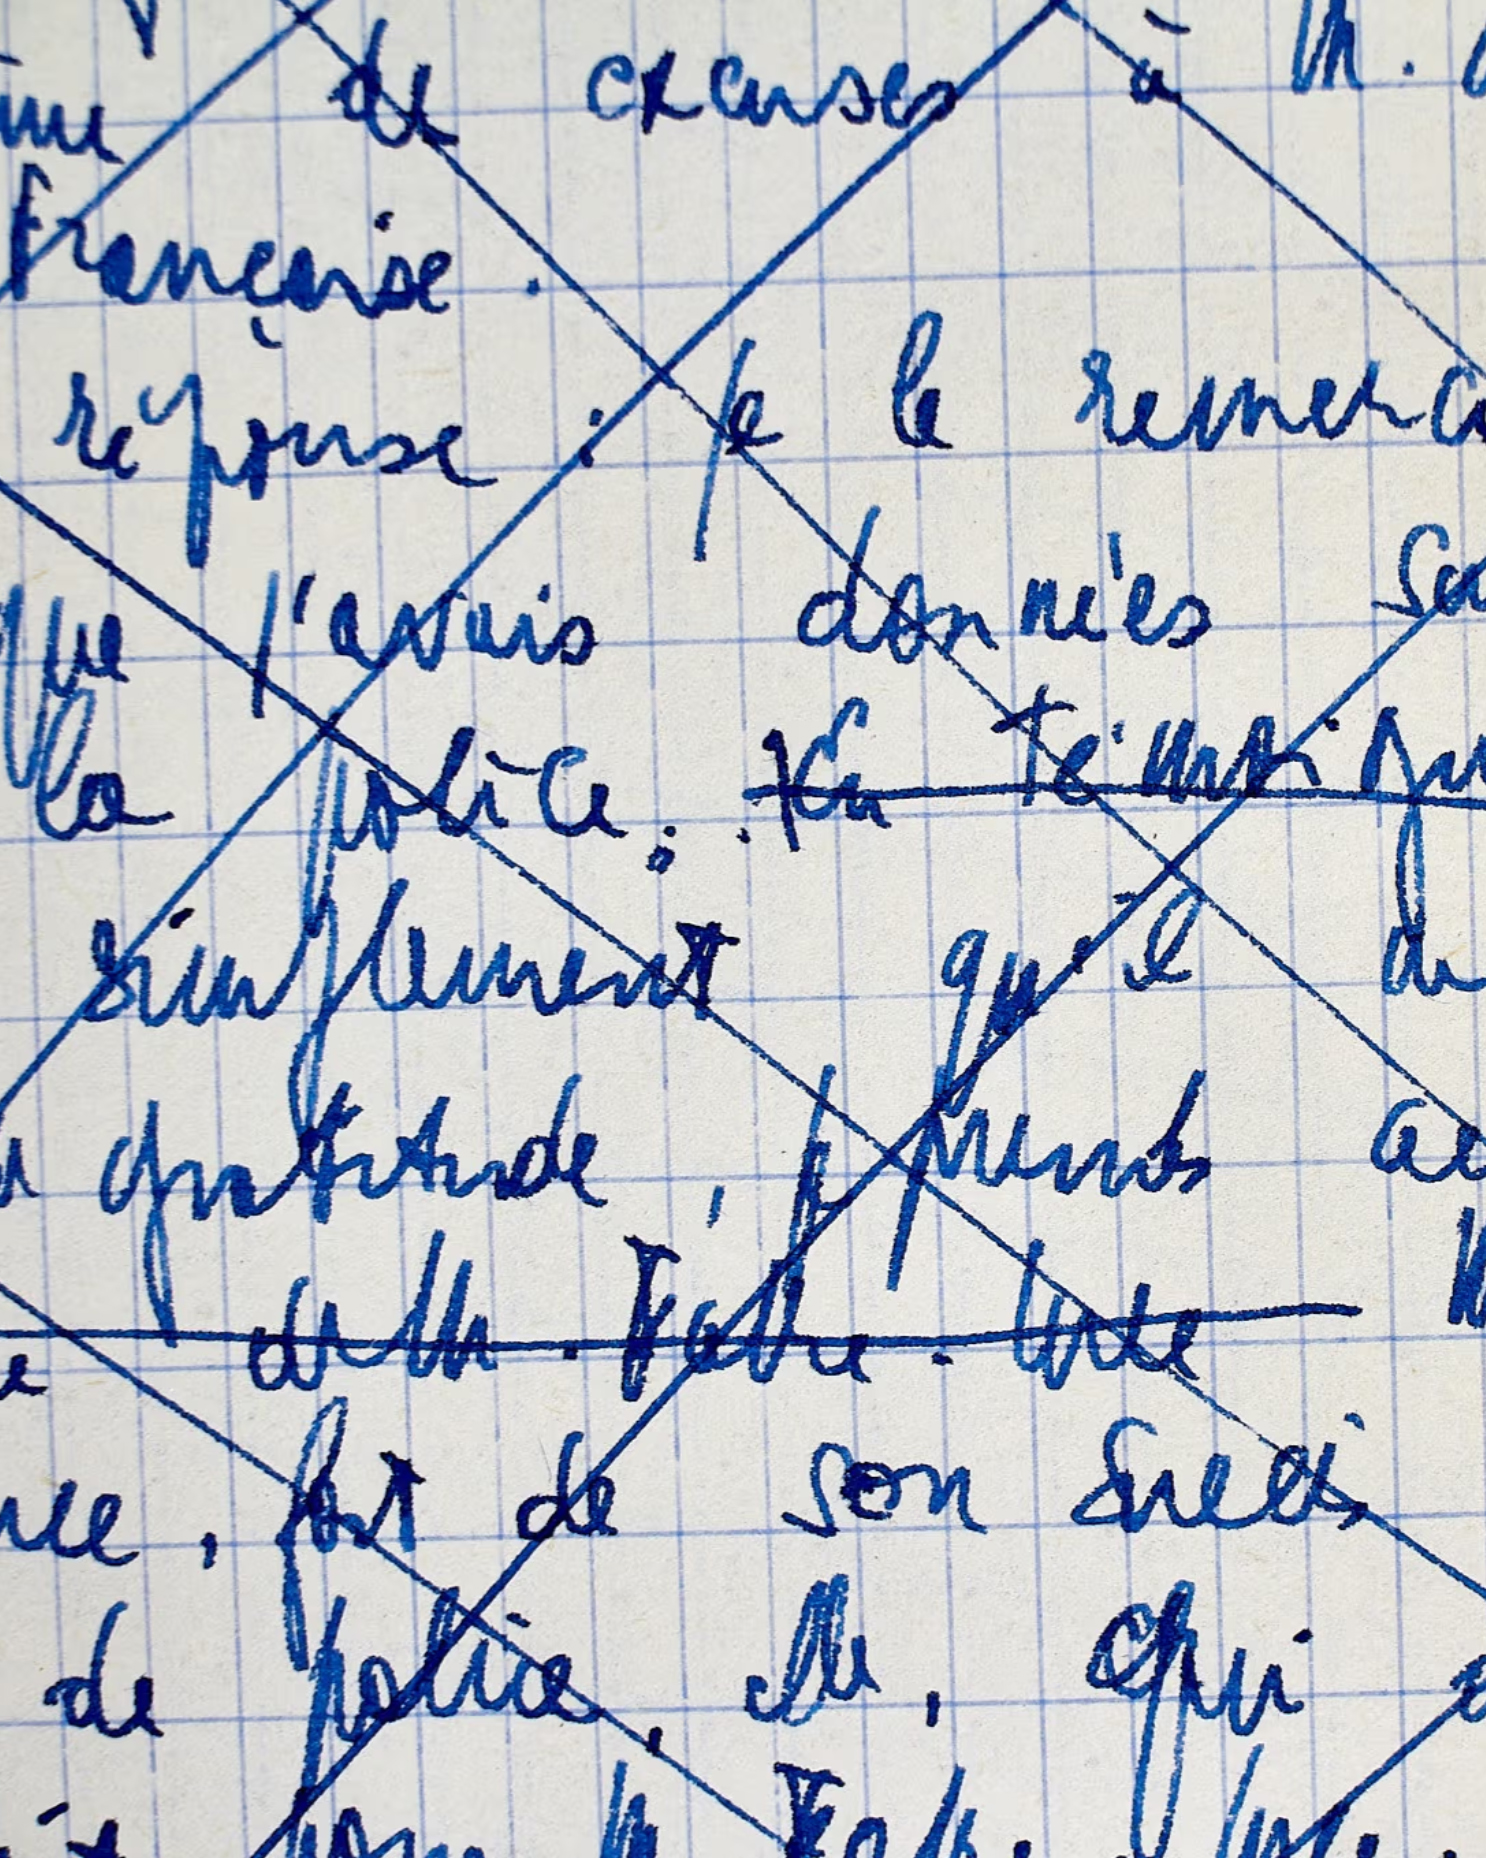 de excuses à M.
française.
réponse : je le remerc
que j'avais données sa
la police. En témoign
simplement qu'il
gratitude, je prends ac
de M. Favre. Luce
, fort de son succès
de police, elle, qui
pour M. Favre. Luce.